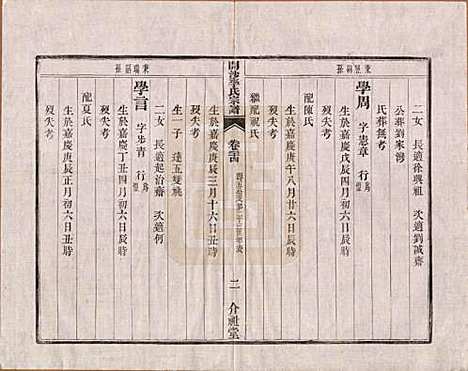 東岱嗣孫
二女 長適徐興祖 次適劉誠齋
公葬劉家灣
氏葬無考
學周 字憲章 行
生於嘉慶戊辰四月初六日辰時
歿失考
配陳氏
生於嘉慶庚午八月廿六日辰時
歿失考
繼配祝氏
氏宗譜
卷三
二
介祉堂
生於嘉慶庚辰三月十六日辰時
歿失考
生一子 達五雙祧
二女 長適起治齋 次適何
學言 字步青 行
生於嘉慶丁丑四月初六日辰時
歿失考
配夏氏
生於嘉慶庚辰正月初六日丑時
歿失考
東瑞嗣孫